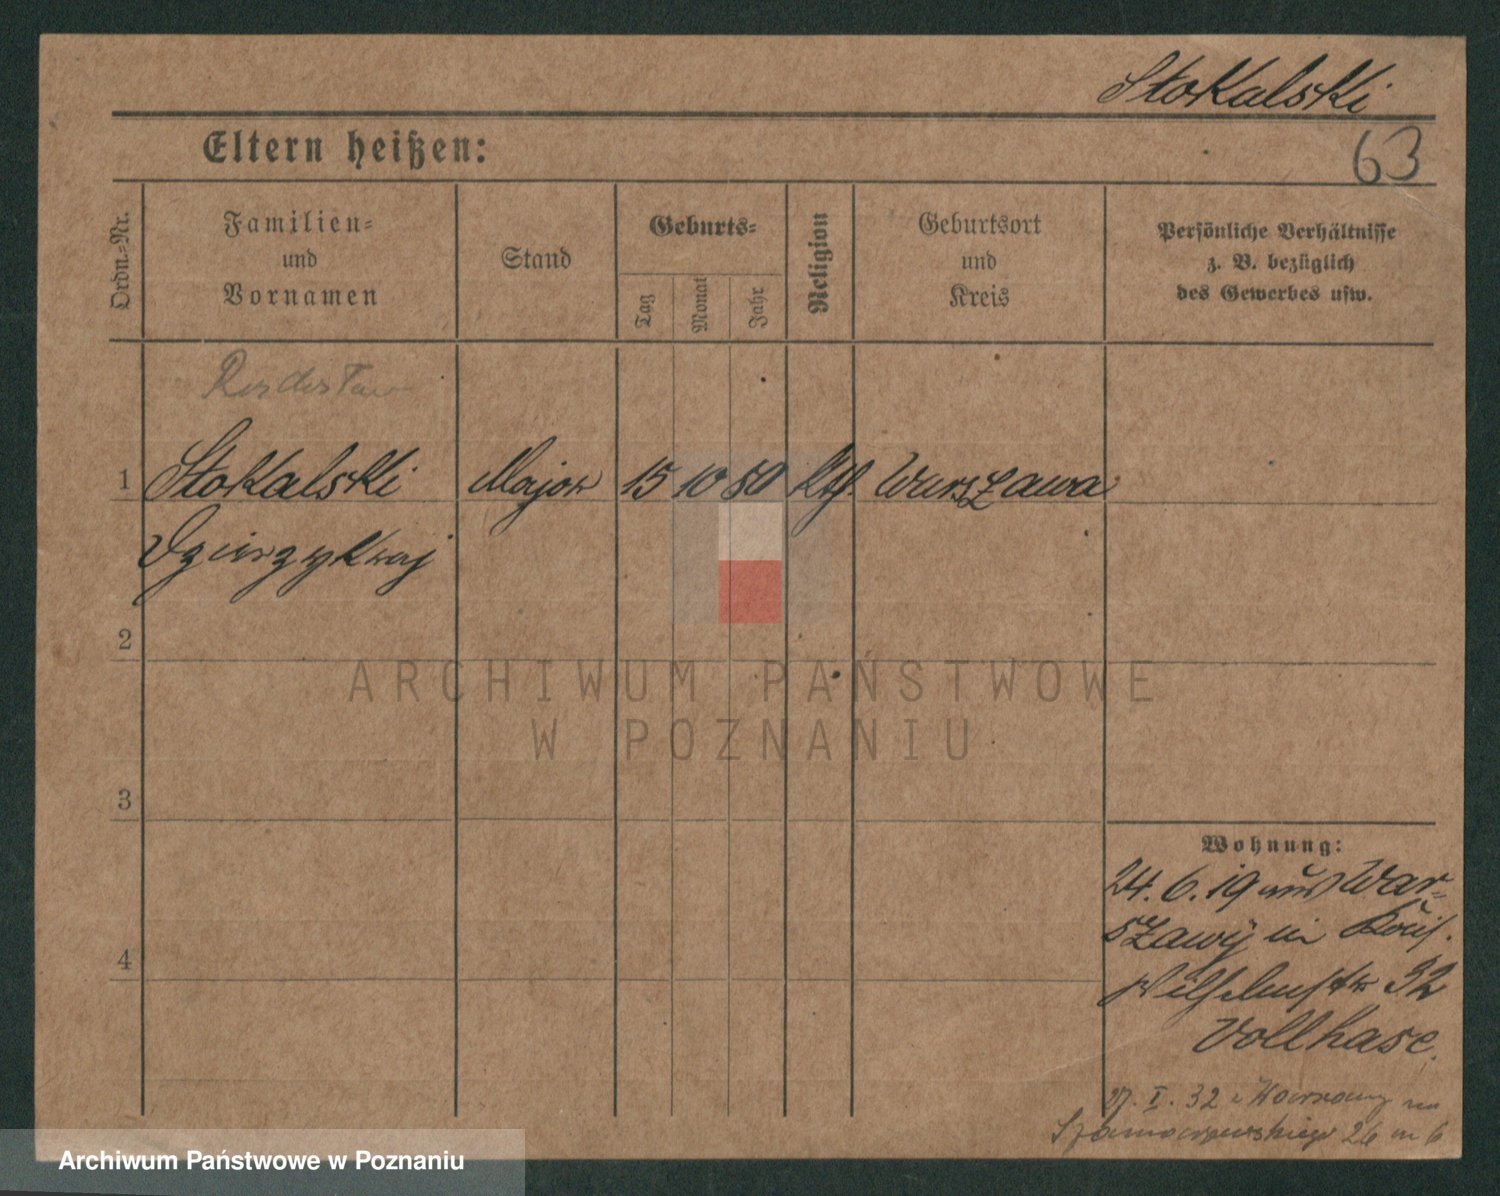 Stokalski
63
Eltern heißen:
Ordn.-Nr.
Familien-
und
Vornamen
Stand
Geburts-
Tag
Monat
Jahr
Religion
Geburtsort
und
Kreis
Persönliche Verhältnisse
z. B. bezüglich
des Gewerbes usw.
1 Stokalski Major 15 10 80 kth. Warszawa
Dzierzykraj
2
3
4
Wohnung:
24.6.19 aus War-
szawy in
Wilhelmstr 32
Vollhase.
27. I. 32 z Warszawy na
26 m 6
ARCHIWUM PAŃSTWOWE
W POZNANIU
Archiwum Państwowe w Poznaniu